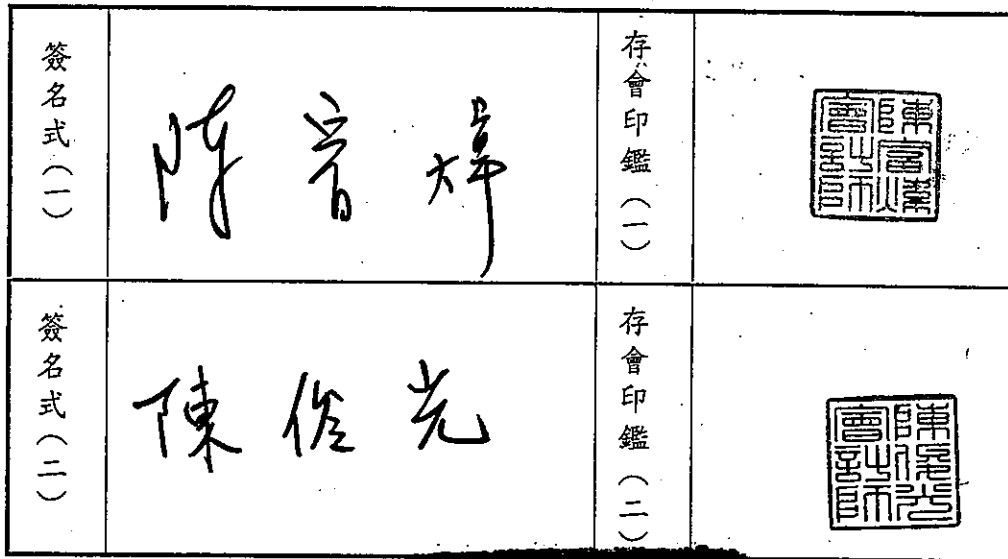 簽名式(一)
陳富煒
存會印鑑(一)
陳富煒會計師
簽名式(二)
陳俊光
存會印鑑(二)
陳俊光會計師